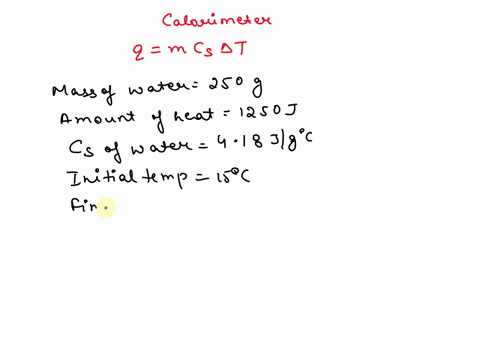 Calorimeter
q = m Cs ΔT
Mass of water = 250 g
Amount of heat = 1250 J
Cs of water = 4.18 J/g°C
Initial temp = 15°C
Fin